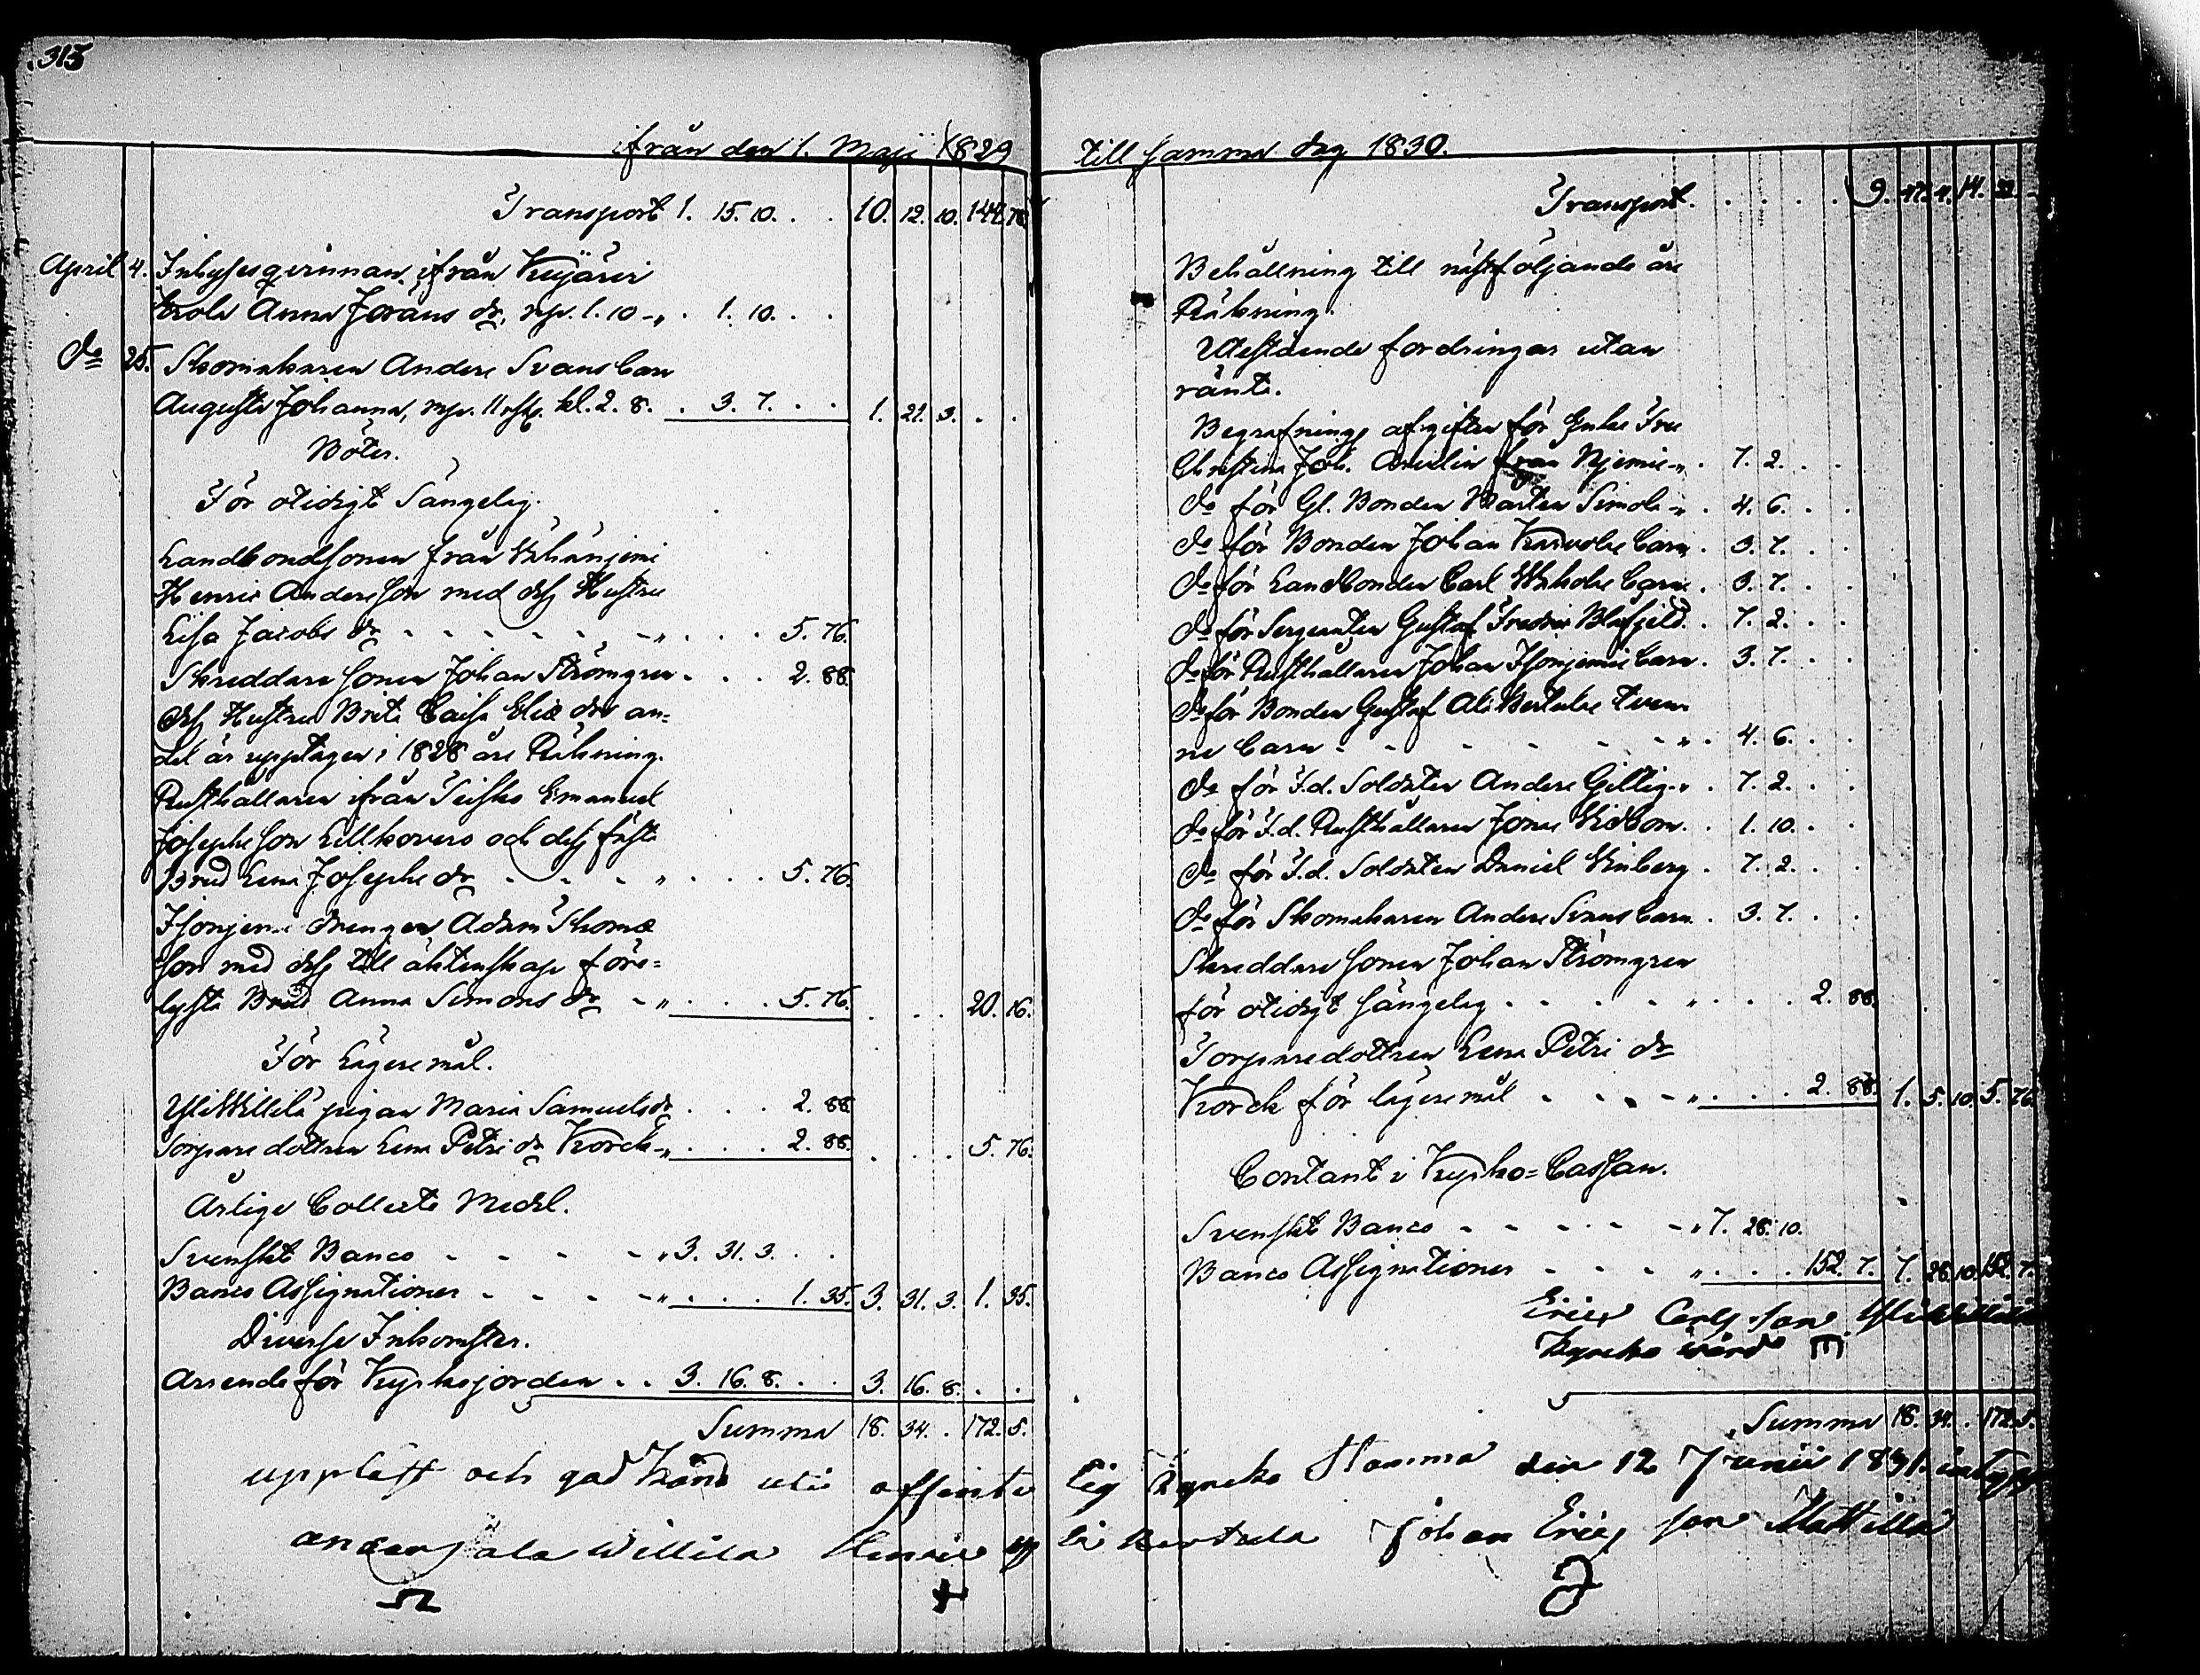 313
ifrån den 1. Maji 1829
Transport 1. 15. 10. . . 10. 12. 10. 144. 78
April 4. Inhyses qvinnan ifrån
Anna Jörans dr, rgr. 1.10 -„ . 1. 10. . .
do 25. Skomakaren Anders Svans barn
Augusta Johanna, rgr. 11 kl. 2. 8. . 3. 7. . . 1. 21. 3. . .
Böter.
För otidigt Sängelag.
Landbondsonen från
Henric Andersson med dess Hustru
Lisa Jacobs dr - - - - - - -„ . . . 5. 76.
Skreddare sonen Johan Strömgren . . . 2. 88.
dess Hustru Brita Caisa Elias dr an=
del är upptagen i 1828 års Räkning.
Rusthållaren ifrån Emanuel
Josephsson Lillkovero och dess fäste
Brud Lena Josephs dr - - - „ . . . 5. 76.
Isonjemi drengen Adam Thomas
son med dess till äktenskap före=
lysta Brud Anna Simons dr - „ . . . 5. 76. . . . 20. 16.
För Lägersmål.
YliWillilä pigan Maria Samuelsdr . . . 2. 88
Torpare dottren Lena Petri dr Korck -„ . . . 2. 88. . . . 5. 76.
Årlige Collecte Medel.
Svenskt Banco - - - - „ 3. 31. 3. . .
Banco Assignationer - - - - -„ . . . 1. 35. 3. 31. 3. 1. 35.
Diverse Inkomster.
Arrende för Kyrkojorden . . 3. 16. 8. . . 3. 16. 8. . .
Summa 18. 34. . 172. 5.
till samma dag 1830.
Transport . . . . . 9. 47. 4. 14. 22
Behållning till nästföljande års
Räkning.
Utestående fordringar utan
ränta.
Begrafnings afgiften för Enke Fru
Christina Joh. från Njemis -„ . 7. 2. . .
do för Gl. Bonden Mårten Simola -„ . 4. 6. . .
do för Bonden Johan Karvola barn . 3. 7. . .
do för Landbonden Carl barn . 3. 7. . .
do för Sergeanten Gustaf Fredric Blåfjeld . 7. 2. . .
do för Rusthållaren Johan Isonjemis barn . 3. 7. . .
do för Bonden Gustaf Ala Bertula tven
ne barn - - - - - - -„ . 4. 6. . .
do för F.d. Soldaten Anders -„ . 7. 2. . .
do för F.d. Rusthållaren Jonas . 1. 10. . .
do för F.d. Soldaten Daniel . 7. 2. . .
do för Skomakaren Anders Svans barn . 3. 7. . .
Skreddare sonen Johan Strömgren
för otidigt sängelag . . . . „ . . . 2. 88.
Torparedottren Lena Petri dr
Korck för lägersmål . . . . -„ . . . 2. 88. 1. 5. 10. 5. 76.
Contant i Kyrko=Cassan.
Svenskt Banco - - - - - -„ 7. 28. 10.
Banco Assignationer - - - „ . . . 152. 7. 7. 28. 10. 152. 7.
Erics Carls son YliWillilä
Kyrcko wärd
Summa 18. 34. . 172. 5.
uppläst och god känd uti offente lig Kyrcko Stamma den 12 Junii 1831.
anders ala Willila Henric yli Bertula Johan Erics son Mattilla